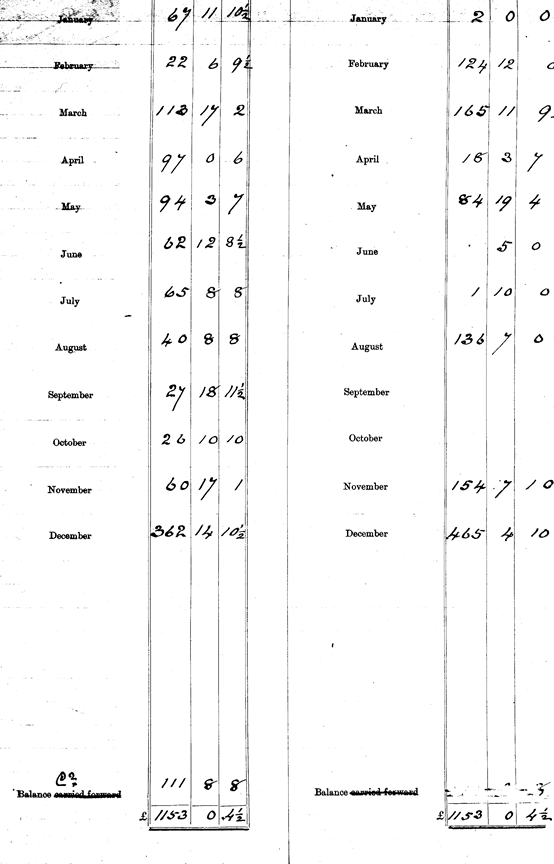 January 67 11 10½
February 22 6 9½
March 113 17 2
April 97 0 6
May 94 3 7
June 62 12 8½
July 65 8 8
August 40 8 8
September 27 18 11½
October 26 10 10
November 60 17 1
December 362 14 10½
Balance carried forward 111 8 8
£ 1153 0 4½
January 2 0 0
February 124 12
March 165 11 9
April 18 3 7
May 84 19 4
June 5 0
July 1 10 0
August 136 7 0
September
October
November 154 7 10
December 465 4 10
Balance carried forward
£ 1153 0 4½